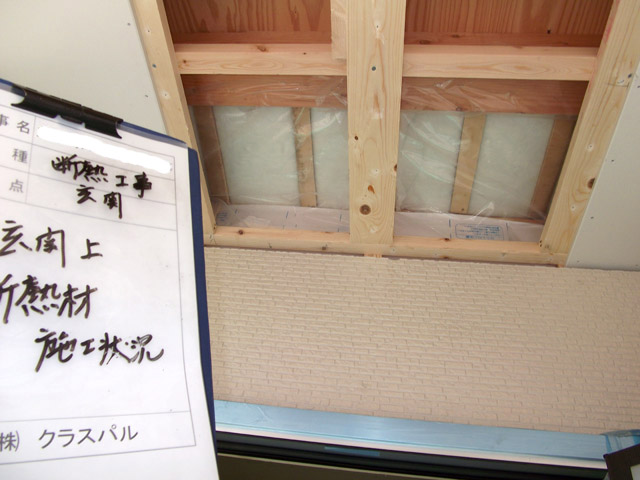 事名
種 断熱工事
点 玄関
玄関上
断熱材
施工状況
㈱ クラスパル